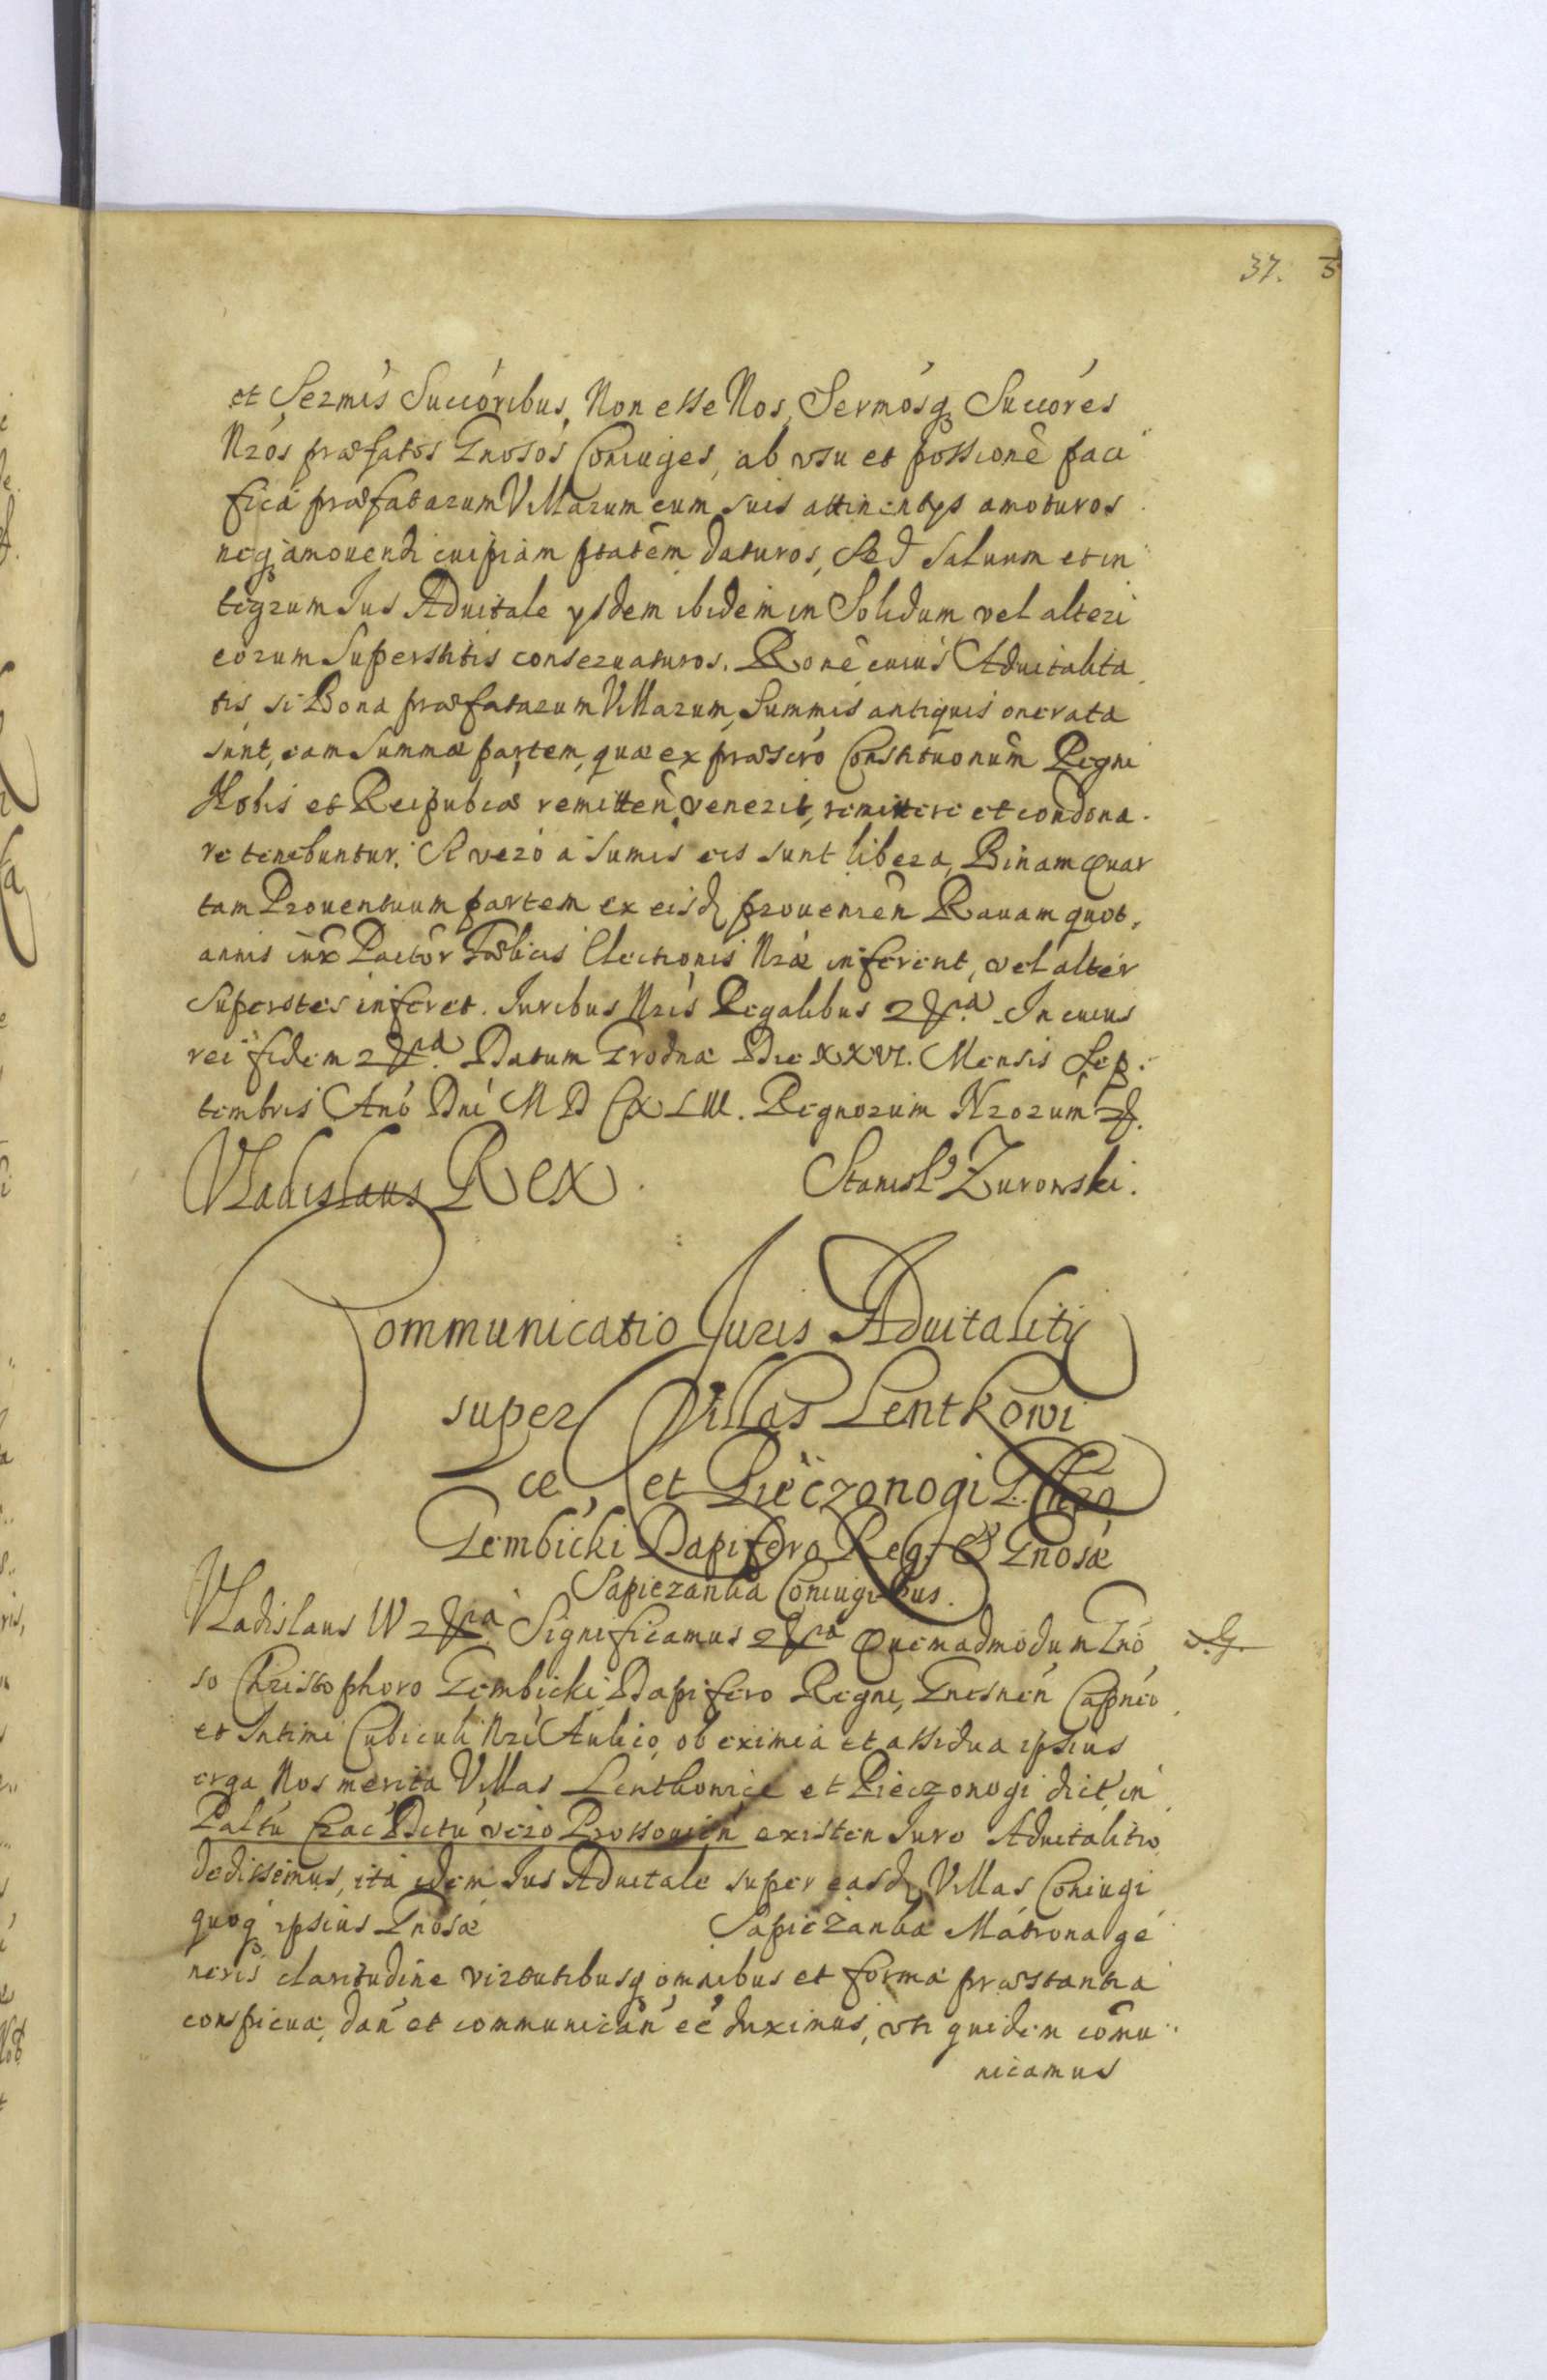 37.
et Sermis Succoribus, Non esse Nos, Sermosq Succores
Nros præfatos Gnosos Coniuges, ab vsu et possione paci
fica præfatarum Villarum cum suis attinentys amoturos
neq amouendi cuipiam ptatem daturos, Sed Saluum et in
tegrum Ius Aduitale ysdem ibidem in Solidum vel alteri
eorum Superstitis conseruaturos. Rone cuius Aduitalita
tis, si Bona præfatarum Villarum, Summis antiquis onerata
sunt, eam Summæ partem, quæ ex præscro Constituonum Regni
Nobis et Reipubcæ remitten venerit, remittere et condona
re tenebuntur. Si vero a sumis eis sunt libera, Binam quar
tam Prouentuum partem ex eisd prouenien Rauam quot
annis iux Pactor Fælicis Electionis Nræ inferent, vel alter
Superstes inferet. Iuribus Nris Regalibus &ra. In cuius
rei fidem &ra. Datum Grodnæ Die XXVI. Mensis Sep
tembris Ano Dni MDCXLIII. Regnorum Nrorum &.
Vladislaus Rex. Stanisl Zurowski.
Communicatio Juris Aduitalitij
super Villas Lentkowi
ce, et Pieczonogi G. Chro
Gembicki Dapifero Reg. & Gnosæ
Sapiezanka Coniugibus.
Vladislaus IV &ra Significamus &ra Quemadmodum Gno
so Christophoro Gembicki Dapifero Regni, Gnesnen Capneo
et Intimi Cubiculi Nri Aulico, ob eximia et assidua ipsius
erga Nos merita Villas Lentkowice et Pieczonogi dict in
Paltu Crac Dctu vero Prossouien existen Iure Aduitalitio
dedissemus, ita idem Ius Aduitale super easd Villas Coniugi
quoq ipsius Gnosæ Sapiezanka Matrona ge
neris claritudine virtutibusq omnibus et forma præstantia
conspicua, dan et communican ee duximus, vti quidem comu
nicamus